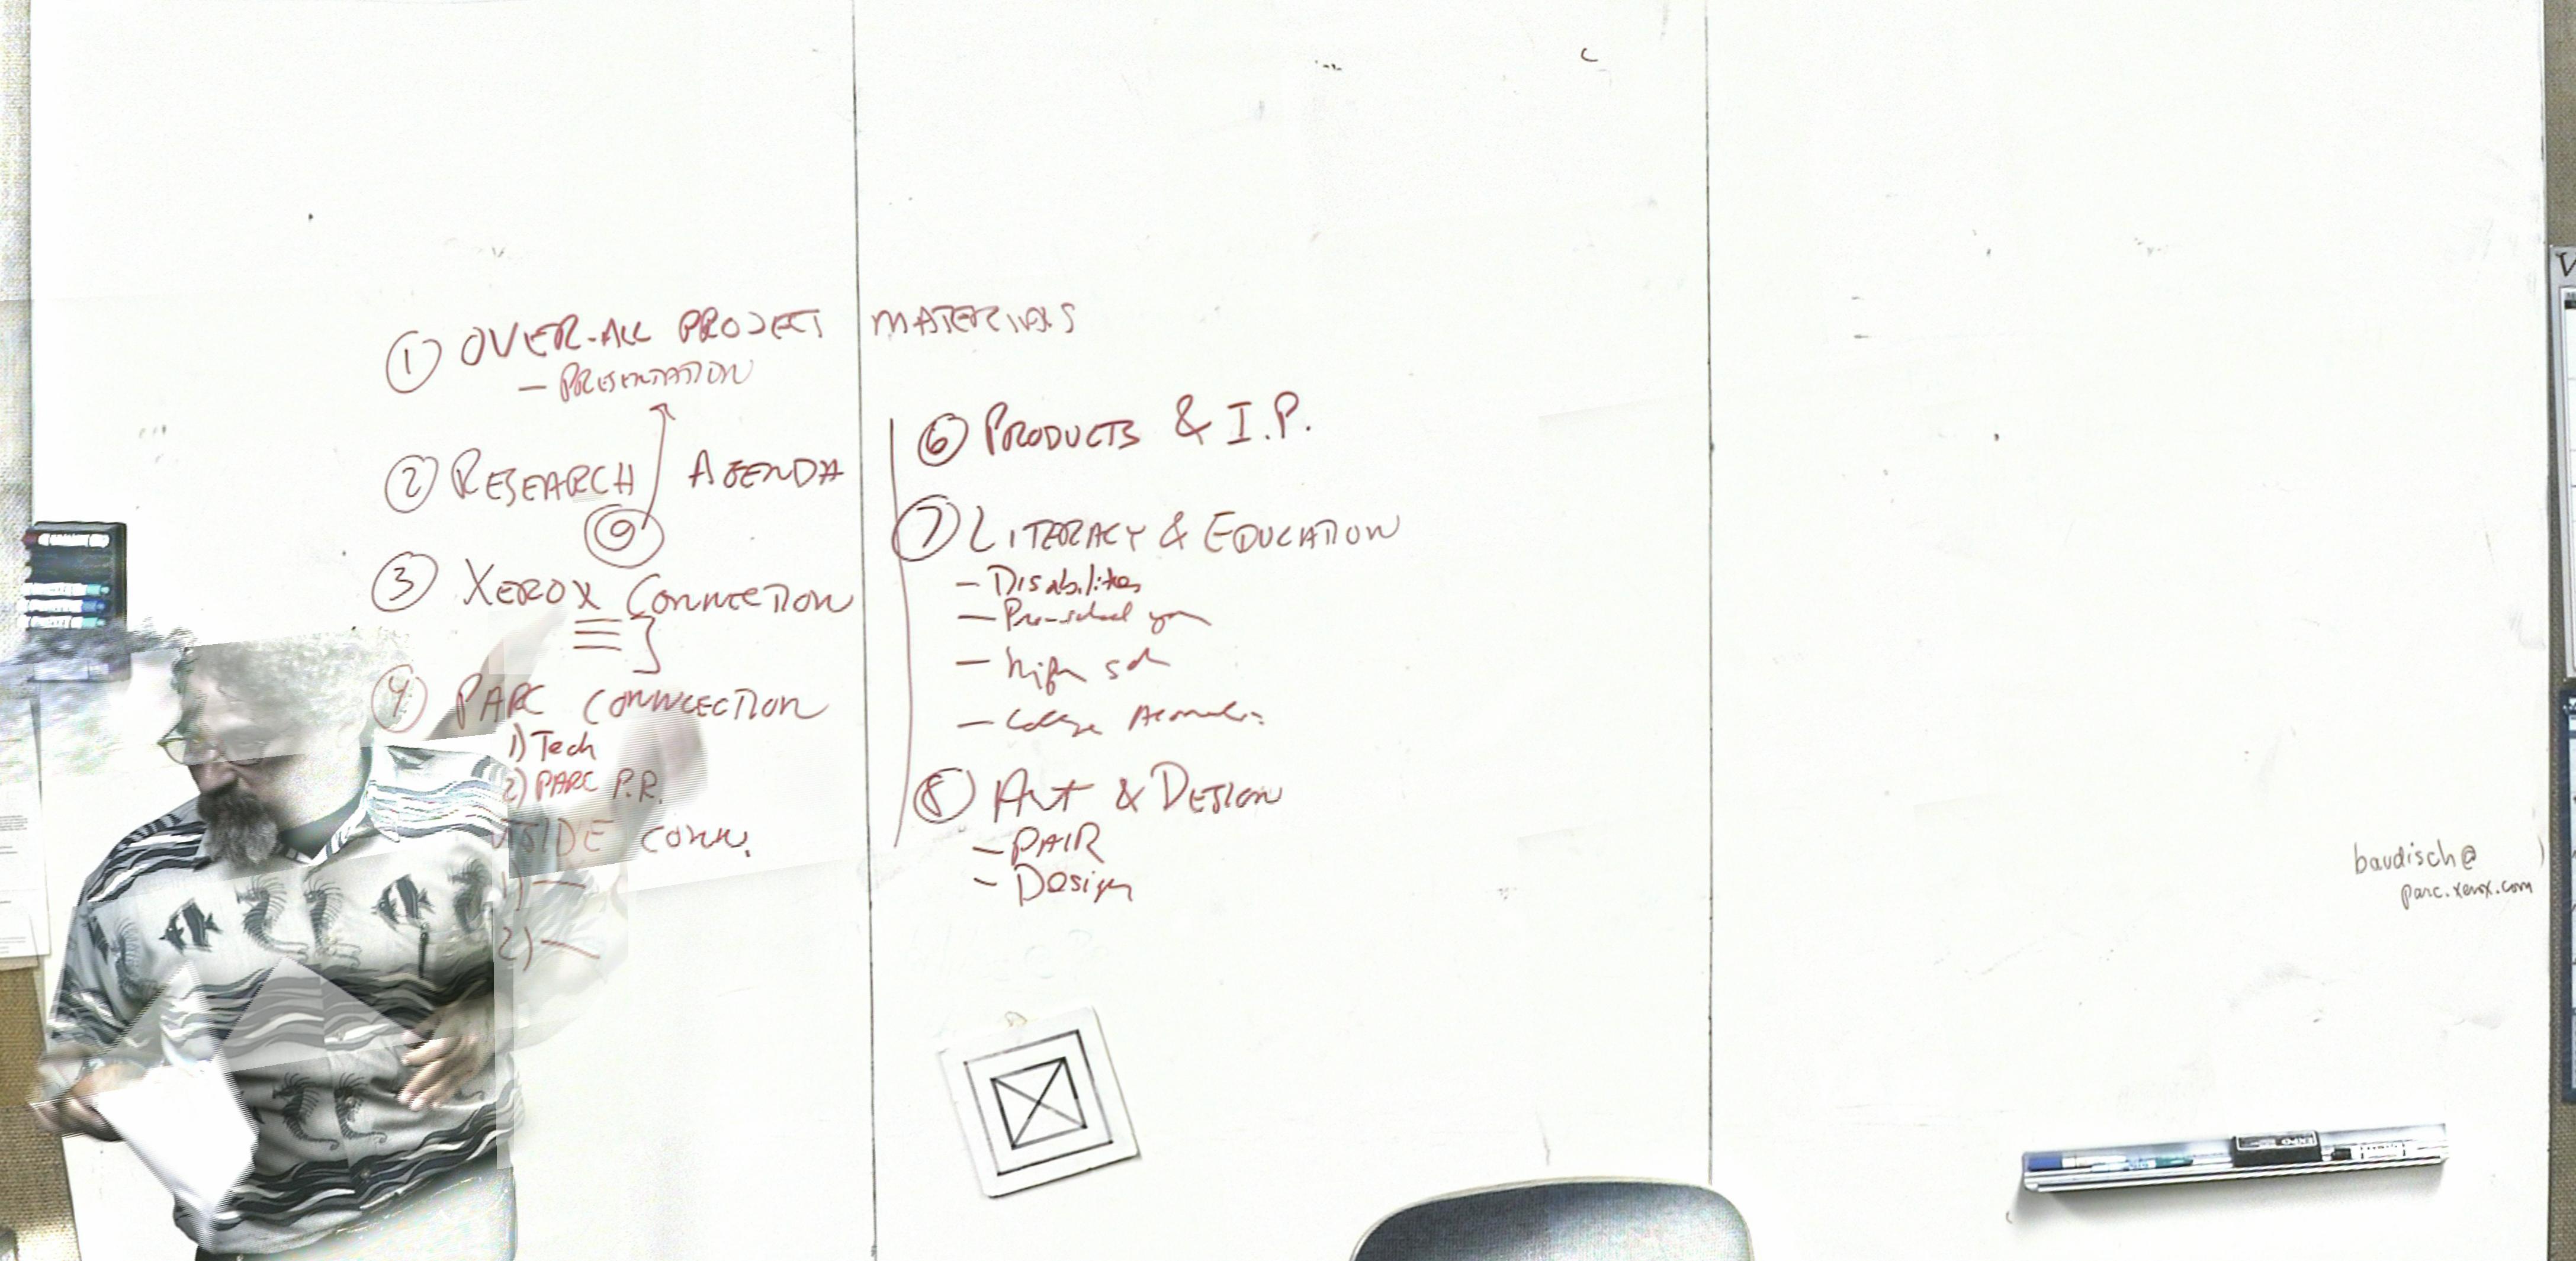 ① OVER-ALL PROJECT MATERIALS
— PRESENTATION
② RESEARCH AGENDA
9
③ XEROX CONNECTION
④ PARC CONNECTION
1) Tech
2) PARC P.R.
CONN.
1) —
2) —
⑥ PRODUCTS & I.P.
⑦ LITERACY & EDUCATION
— Disabilites
— Pre-school
— high
— College
⑧ Art & DESIGN
— PAIR
— Design
baudisch@
parc.xerox.com
EXPO